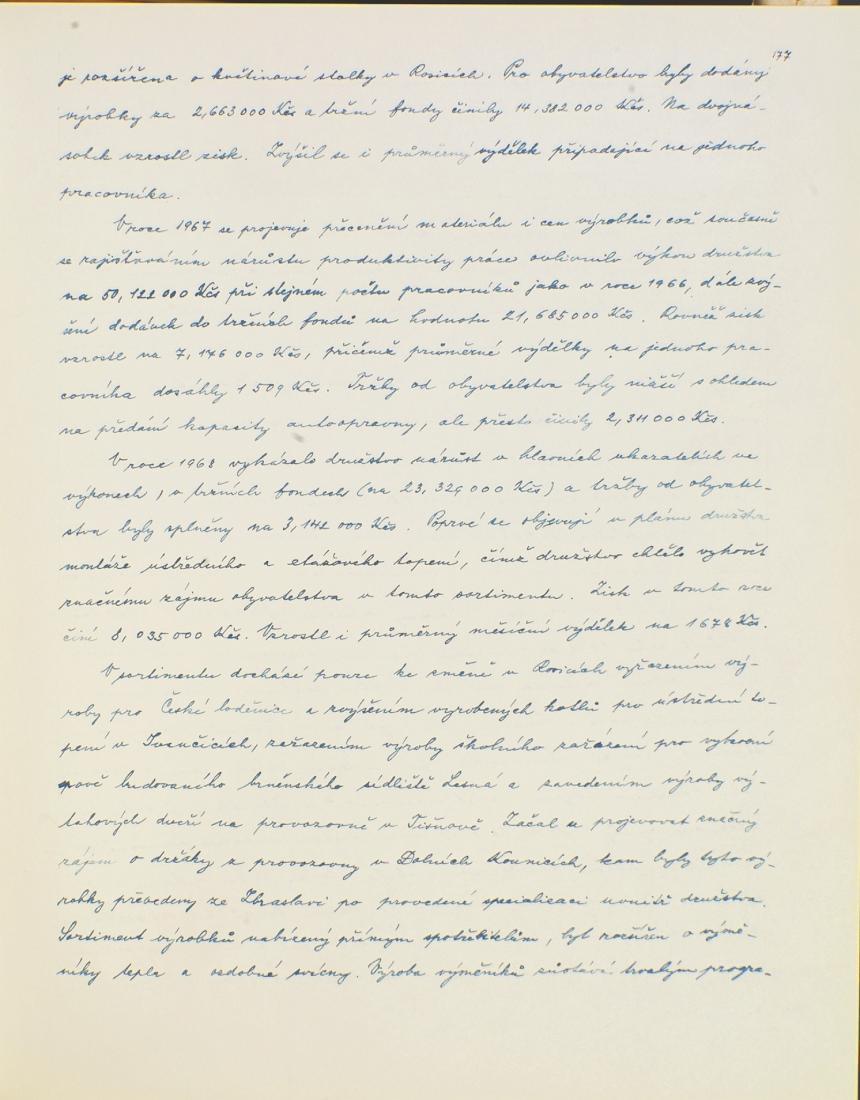 177
je rozšířena o květinové stolky v Rosicích. Pro obyvatelstvo byly dodány
výrobky za 2,663 000 Kčs a tržní fondy činily 14,382 000 Kčs. Na dvojná-
sobek vzrostl zisk. Zvýšil se i průměrný výdělek připadající na jednoho
pracovníka.
V roce 1967 se projevuje přecenění materiálu i cen výrobků, což současně
se zajišťováním nárůstu produktivity práce ovlivnilo výkon družstva
na 50,122 000 Kčs při stejném počtu pracovníků jako v roce 1966, dále zvý-
šení dodávek do tržních fondů na hodnotu 21,685 000 Kčs. Rovněž zisk
vzrostl na 7,146 000 Kčs, přičemž průměrné výdělky na jednoho pra-
covníka dosáhly 1 509 Kčs. Tržby od obyvatelstva byly nižší s ohledem
na předání kapacity autoopravny, ale přesto činily 2,311 000 Kčs.
V roce 1968 vykázalo družstvo nárůst v hlavních ukazatelích ve
výkonech, v tržních fondech (na 23,329 000 Kčs) a tržby od obyvatel-
stva byly splněny na 3,142 000 Kčs. Poprvé se objevují v plánu družstva
montáže ústředního a etážového topení, čímž družstvo chtělo vyhovět
značnému zájmu obyvatelstva v tomto sortimentu. Zisk v tomto roce
činí 8,035 000 Kčs. Vzrostl i průměrný měsíční výdělek na 1 678 Kčs.
V sortimentu dochází pouze ke změně v Rosicích vyřazením vý-
roby pro České loděnice a zvýšením vyrobených kotlů pro ústřední to-
pení v Ivančicích, zařazením výroby školního zařízení pro vybavení
nově budovaného brněnského sídliště Lesná a zavedením výroby vý-
tahových dveří na provozovně v Tišnově. Začal se projevovat značný
zájem o držáky z provozovny v Dolních Kounicích, kam byly tyto vý-
robky převedeny ze Zbraslavi po provedené specialisaci uvnitř družstva.
Sortiment výrobků nabízený přímým spotřebitelům, byl rozšířen o výmě-
níky tepla a ozdobné svícny. Výroba výměníků zůstává trvalým progra-